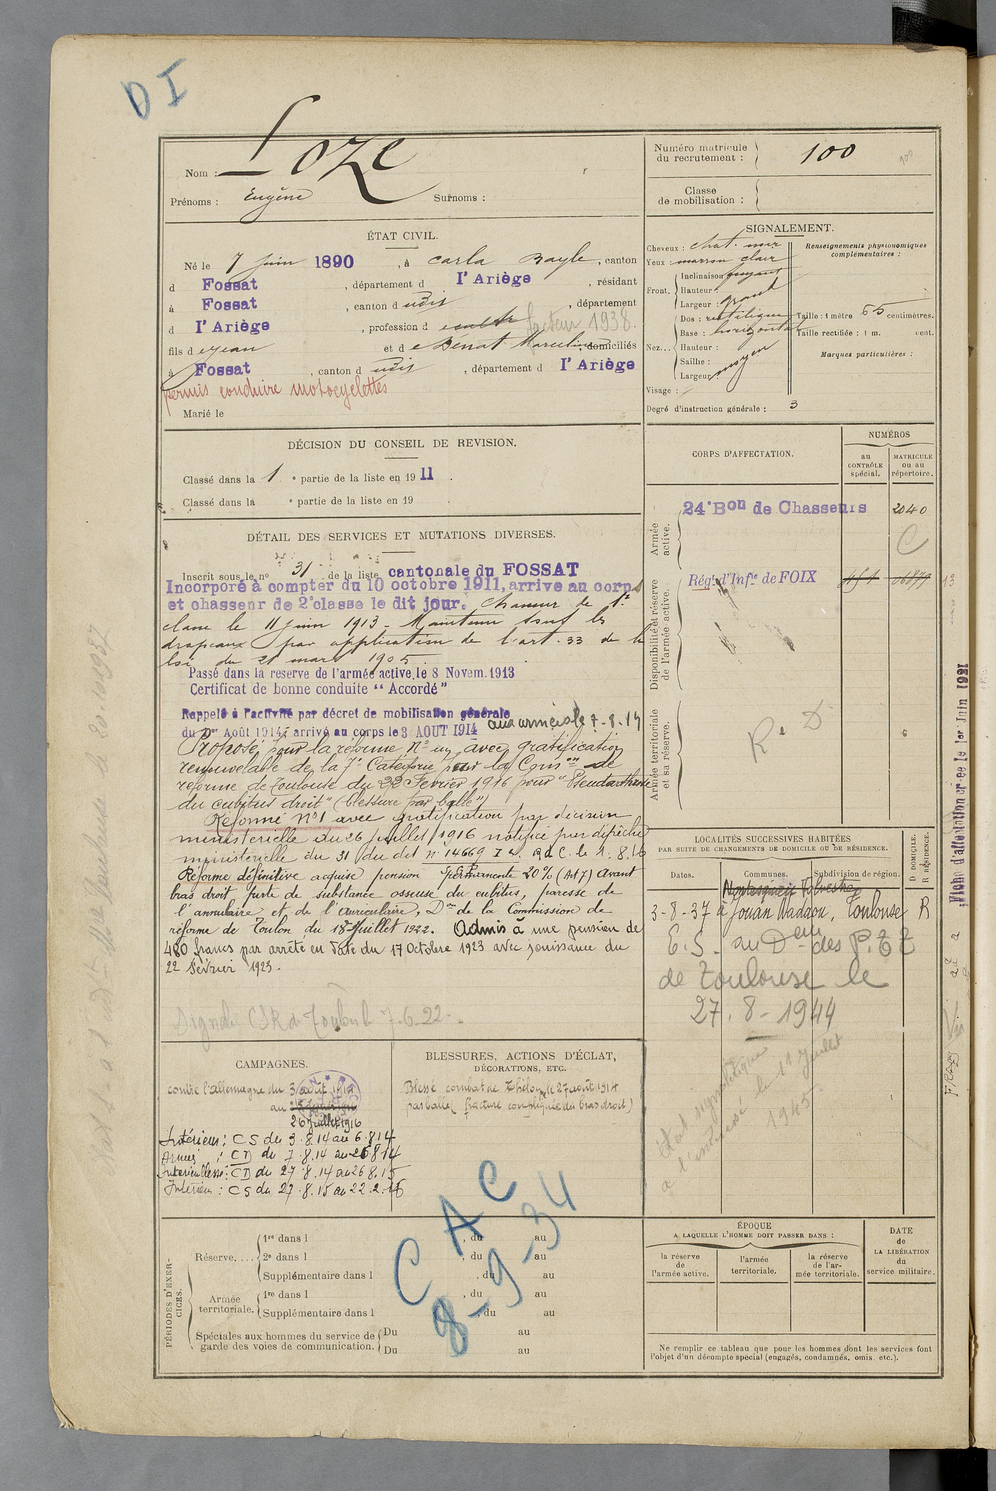 D I
Nom : Loze
Prénoms : Eugène Surnoms :
ÉTAT CIVIL.
Né le 7 juin 1890, à Carla Bayle, canton
d Fossat, département d l'Ariège, résidant
à Fossat, canton d udit, département
d l'Ariège, profession d cultr facteur 1938.
fils d e Jean et d e Benat Marceline, domiciliés
à Fossat, canton d udit, département d l'Ariège
permis conduire motocyclettes
Marié le
DÉCISION DU CONSEIL DE REVISION.
Classé dans la 1 e partie de la liste en 1911.
Classé dans la e partie de la liste en 19 .
DÉTAIL DES SERVICES ET MUTATIONS DIVERSES.
Inscrit sous le n° 31 de la liste cantonale du FOSSAT
Incorporé à compter du 10 octobre 1911, arrive au corps
et chasseur de 2e classe le dit jour. Chasseur de 1e
classe le 11 juin 1913 - Maintenu sous les
drapeaux par application de l'art. 33 de la
loi du 21 mars 1905.
Passé dans la reserve de l'armée active, le 8 Novem. 1913
Certificat de bonne conduite “ Accordé ”
Rappelé à l'activité par décret de mobilisation générale
du 1er Août 1914, arrivé au corps le 3 AOUT 1914 aux armées le 7-8-14
Proposé pour la réforme N° un avec gratification
renouvelable de la 7e Catégorie par la Comson de
réforme de Toulouse du 22 Fevrier 1916 pour "Pseudarthrose
du cubitus droit" (blessure par balle")
Réformé N°1 avec gratification par décision
ministerielle du 26 juillet 1916 notifié par dépêche
ministerielle du 31 du dit n° 14669 I. R d C. le 1.8.16
Réforme définitive acquise pension permanente 20% (Art 7) avant
bras droit perte de substance osseuse du cubitus, paresse de
l'annulaire et de l'auriculaire, Don de la Commission de
réforme de Toulon du 18 Juillet 1922. Admis à une pension de
480 francs par arrêté en date du 17 Octobre 1923 avec jouissance du
22 février 1923.
Signalé CSR de Toulon le 7-6-22.
CAMPAGNES.
contre l'allemagne du 3 août 1914
au
26 juillet 1916
Intérieur : CS du 3.8.14 au 6.8.14
Armées : CD du 7.8.14 au 26.8.14
Interieur blessé : CD du 27.8.14 au 26.8.15
Intérieur : CS du 27.8.15 au 22.2.16
BLESSURES, ACTIONS D'ÉCLAT,
DÉCORATIONS, ETC.
Blessé combat de le 27 août 1914
par balle (fracture compliquée du bras droit)
C A C
8-9-34
PÉRIODES D'EXERCICES.
Réserve.... 1re dans l , du au
2e dans l , du au
Supplémentaire dans l , du au
Armée territoriale. 1re dans l , du au
Supplémentaire dans l , du au
Spéciales aux hommes du service de garde des voies de communication. Du au
Du au
Numéro matricule
du recrutement : 100
Classe
de mobilisation :
SIGNALEMENT.
Cheveux : chat. noir
Yeux : marron clair
Front. Inclinaison : fuyant
Hauteur :
Largeur : grand
Nez... Dos : rectiligne
Base : horizontal
Hauteur :
Saillie :
Largeur : moyen
Visage :
Renseignements physionomiques
complémentaires :
Taille : 1 mètre 65 centimètres.
Taille rectifiée : 1 m. cent.
Marques particulières :
Degré d'instruction générale : 3
CORPS D'AFFECTATION.
NUMÉROS
au
CONTRÔLE
spécial.
MATRICULE
ou au
répertoire.
Armée
active.
24e Bon de Chasseurs 2040
C
Disponibilité et réserve
de l'armée active.
Régt. d'Infie de FOIX
13
Armée territoriale
et sa réserve.
R. D.
LOCALITÉS SUCCESSIVES HABITÉES
PAR SUITE DE CHANGEMENTS DE DOMICILE OU DE RÉSIDENCE.
Dates. Communes. Subdivision de région. D. DOMICILE. R RÉSIDENCE.
3-8-37 Toulouse R
E.S. au Dem des P.T.T
de Toulouse le
27.8-1944
ÉPOQUE
A LAQUELLE L'HOMME DOIT PASSER DANS :
la réserve
de
l'armée active.
l'armée
territoriale.
la réserve
de l'ar-
mée territoriale.
DATE
de
LA LIBÉRATION
du
service militaire.
Ne remplir ce tableau que pour les hommes dont les services font
l'objet d'un décompte spécial (engagés, condamnés, omis, etc.).